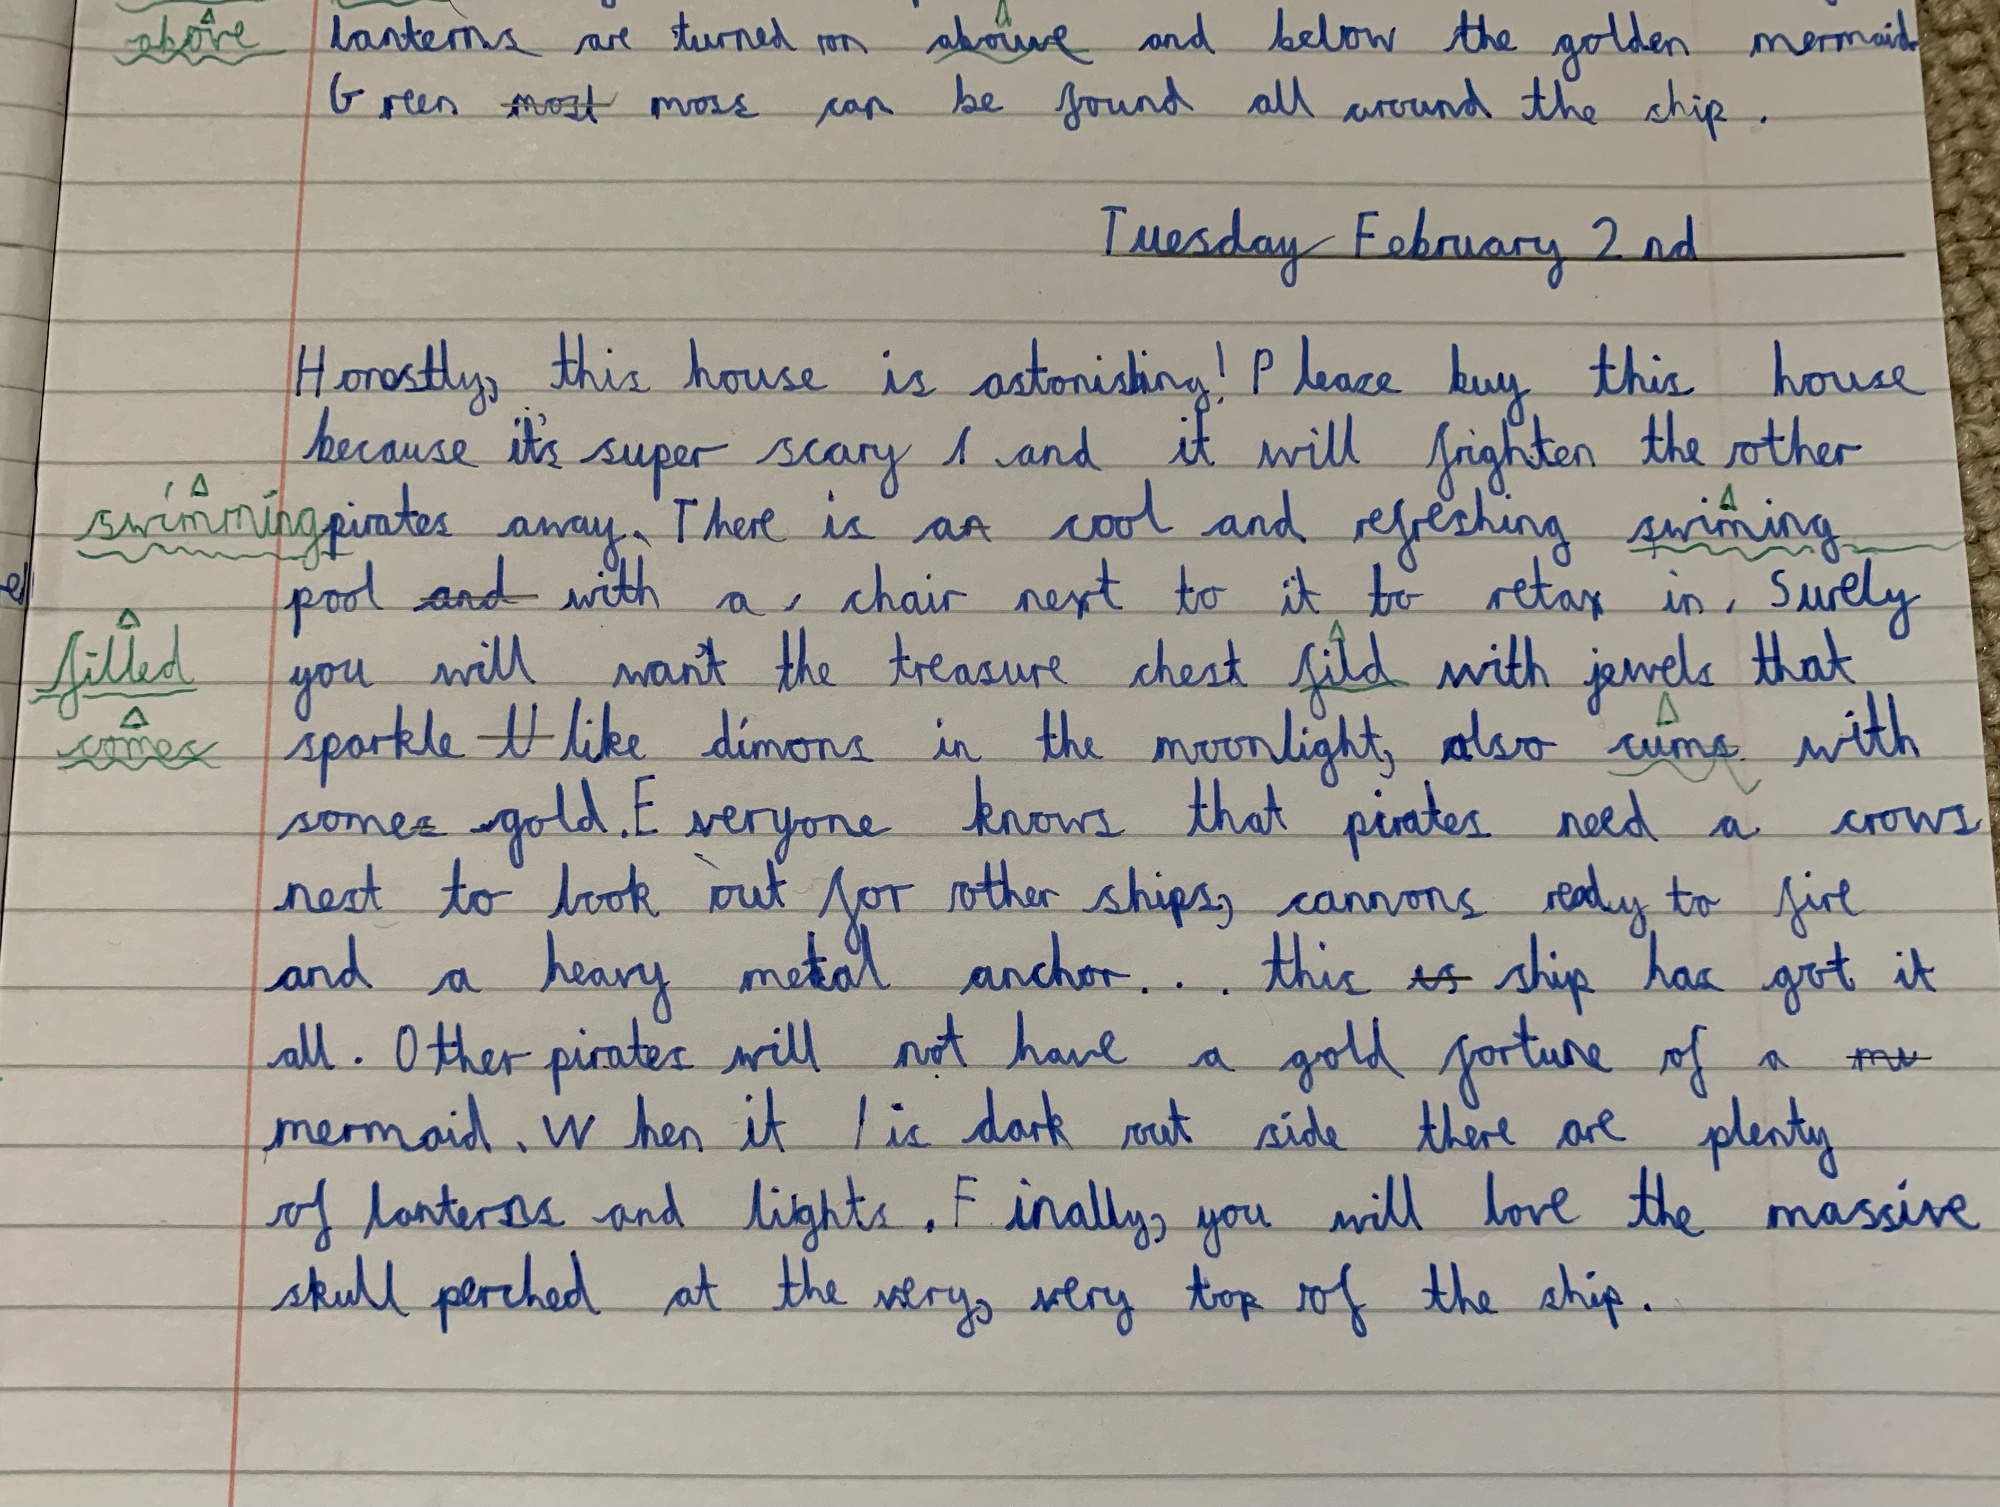 above lanterns are turned on abouve and below the golden mermaid
Green most moss can be found all around the ship.
Tuesday February 2nd
Honostly, this house is astonishing! Please buy this house
because it's super scary and it will frighten the other
swimming pirates away. There is a cool and refreshing swiming
pool and with a chair next to it to retax in. Surely
filled you will want the treasure chest fild with jewels that
comes sparkle like dimons in the moonlight, also cums with
some gold. Everyone knows that pirates need a crows
nest to look out for other ships, cannons ready to fire
and a heavy metal anchor... this is ship has got it
all. Other pirates will not have a gold fortune of a
mermaid. When it is dark out side there are plenty
of lanterns and lights. Finally, you will love the massive
skull perched at the very, very top of the ship.